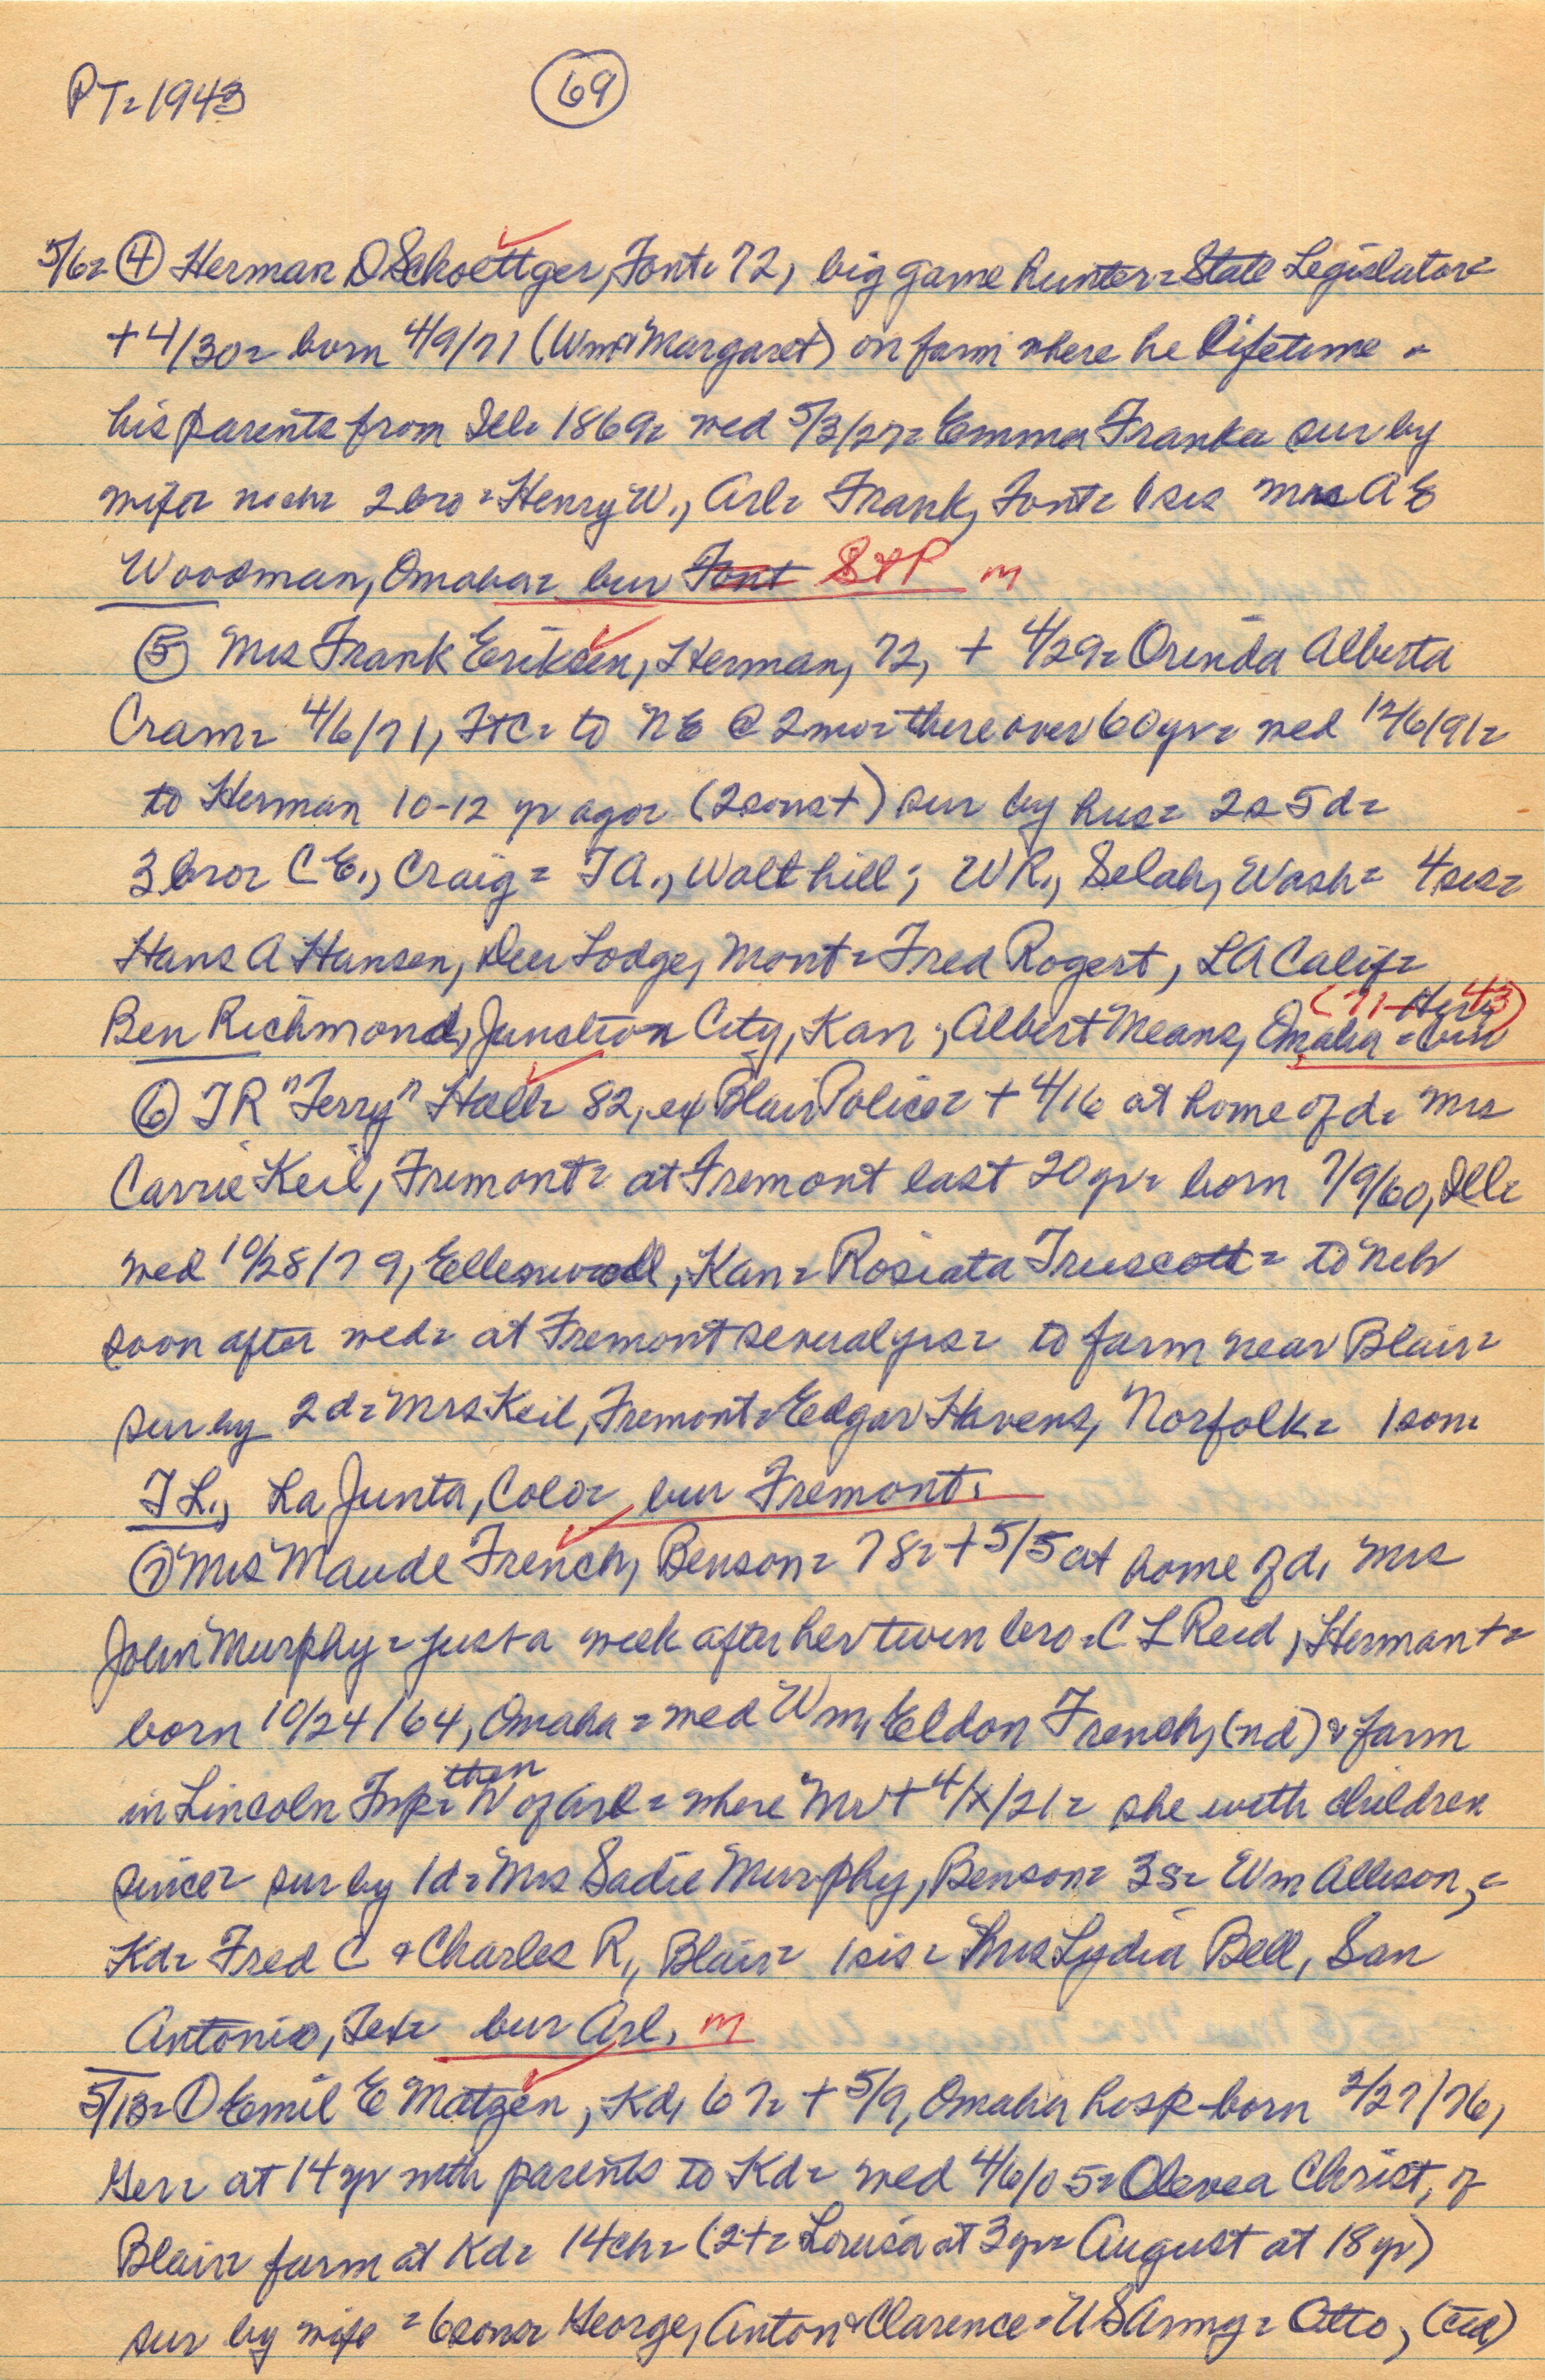 PT = 1943
69
5/6 = ④ Herman D Schoettger, Font = 72, big game hunter = State Legislator =
+ 4/30 = born 4/9/71 (Wm & Margaret) on farm where he lifetime =
his parents from Ill = 1869 = wed 5/3/27 = Emma Franka sur by
wife = no ch = 2 bro = Henry W., Arl = Frank, Font = 1 sis Mrs A E
Woodman, Omaha = bur Font S+P m
⑤ Mrs Frank Eriksen, Herman, 72, + 4/29 = Orinda Alberta
Cram = 4/6/71, = to NE @ 2 mo = there over 60 yr = wed 12/6/91 =
to Herman 10-12 yr ago = (2 sons +) sur by hus = 2 s 5 d =
3 bro = C E., Craig = T A., Walthill; W R., Selah, Wash = 4 sis =
Hans A Hansen, Deer Lodge, Mont = Fred Rogert, LA Calif =
(71-43)
Ben Richmond, Junction City, Kan; Albert Means, Omaha = bur Herm
⑥ T R "Terry" Hall = 82, ex Blair Police = + 4/16 at home of d = Mrs
Carrie Keil, Fremont = at Fremont last 20 yr = born 7/9/60, Ill =
wed 10/28/79, Ellenwood, Kan = Rosiata Truscott = to Neb
soon after wed = at Fremont several yrs = to farm near Blair =
sur by 2 d = Mrs Keil, Fremont = Edgar Havens, Norfolk = 1 son =
T L., La Junta, Colo = bur Fremont.
⑦ Mrs Maude French, Benson = 78 = + 5/5 at home of d, Mrs
John Murphy = just a week after her twin bro = C L Reed, Herman + =
born 10/24/64, Omaha = wed Wm, Eldon French, (nd) & farm
then
in Lincoln Twp = N of Arl = where Mr + 4/x/21 = she with children
since = sur by 1 d = Mrs Sadie Murphy, Benson = 3 s = Wm Allison, =
Kd = Fred C & Charles R., Blair = 1 sis = Mrs Lydia Bell, San
Antonio, Tex = bur Arl. m
5/13 = ① Emil E Matzen, Kd, 67 = + 5/9, Omaha hosp - born 2/27/76,
Ger = at 14 yr with parents to Kd = wed 4/6/05 = Olevea Christ, of
Blair = farm at Kd = 14 ch = (2 + = Louisa at 3 yr = August at 18 yr)
sur by wife = 6 sons = George, Anton & Clarence = US Army = Otto,